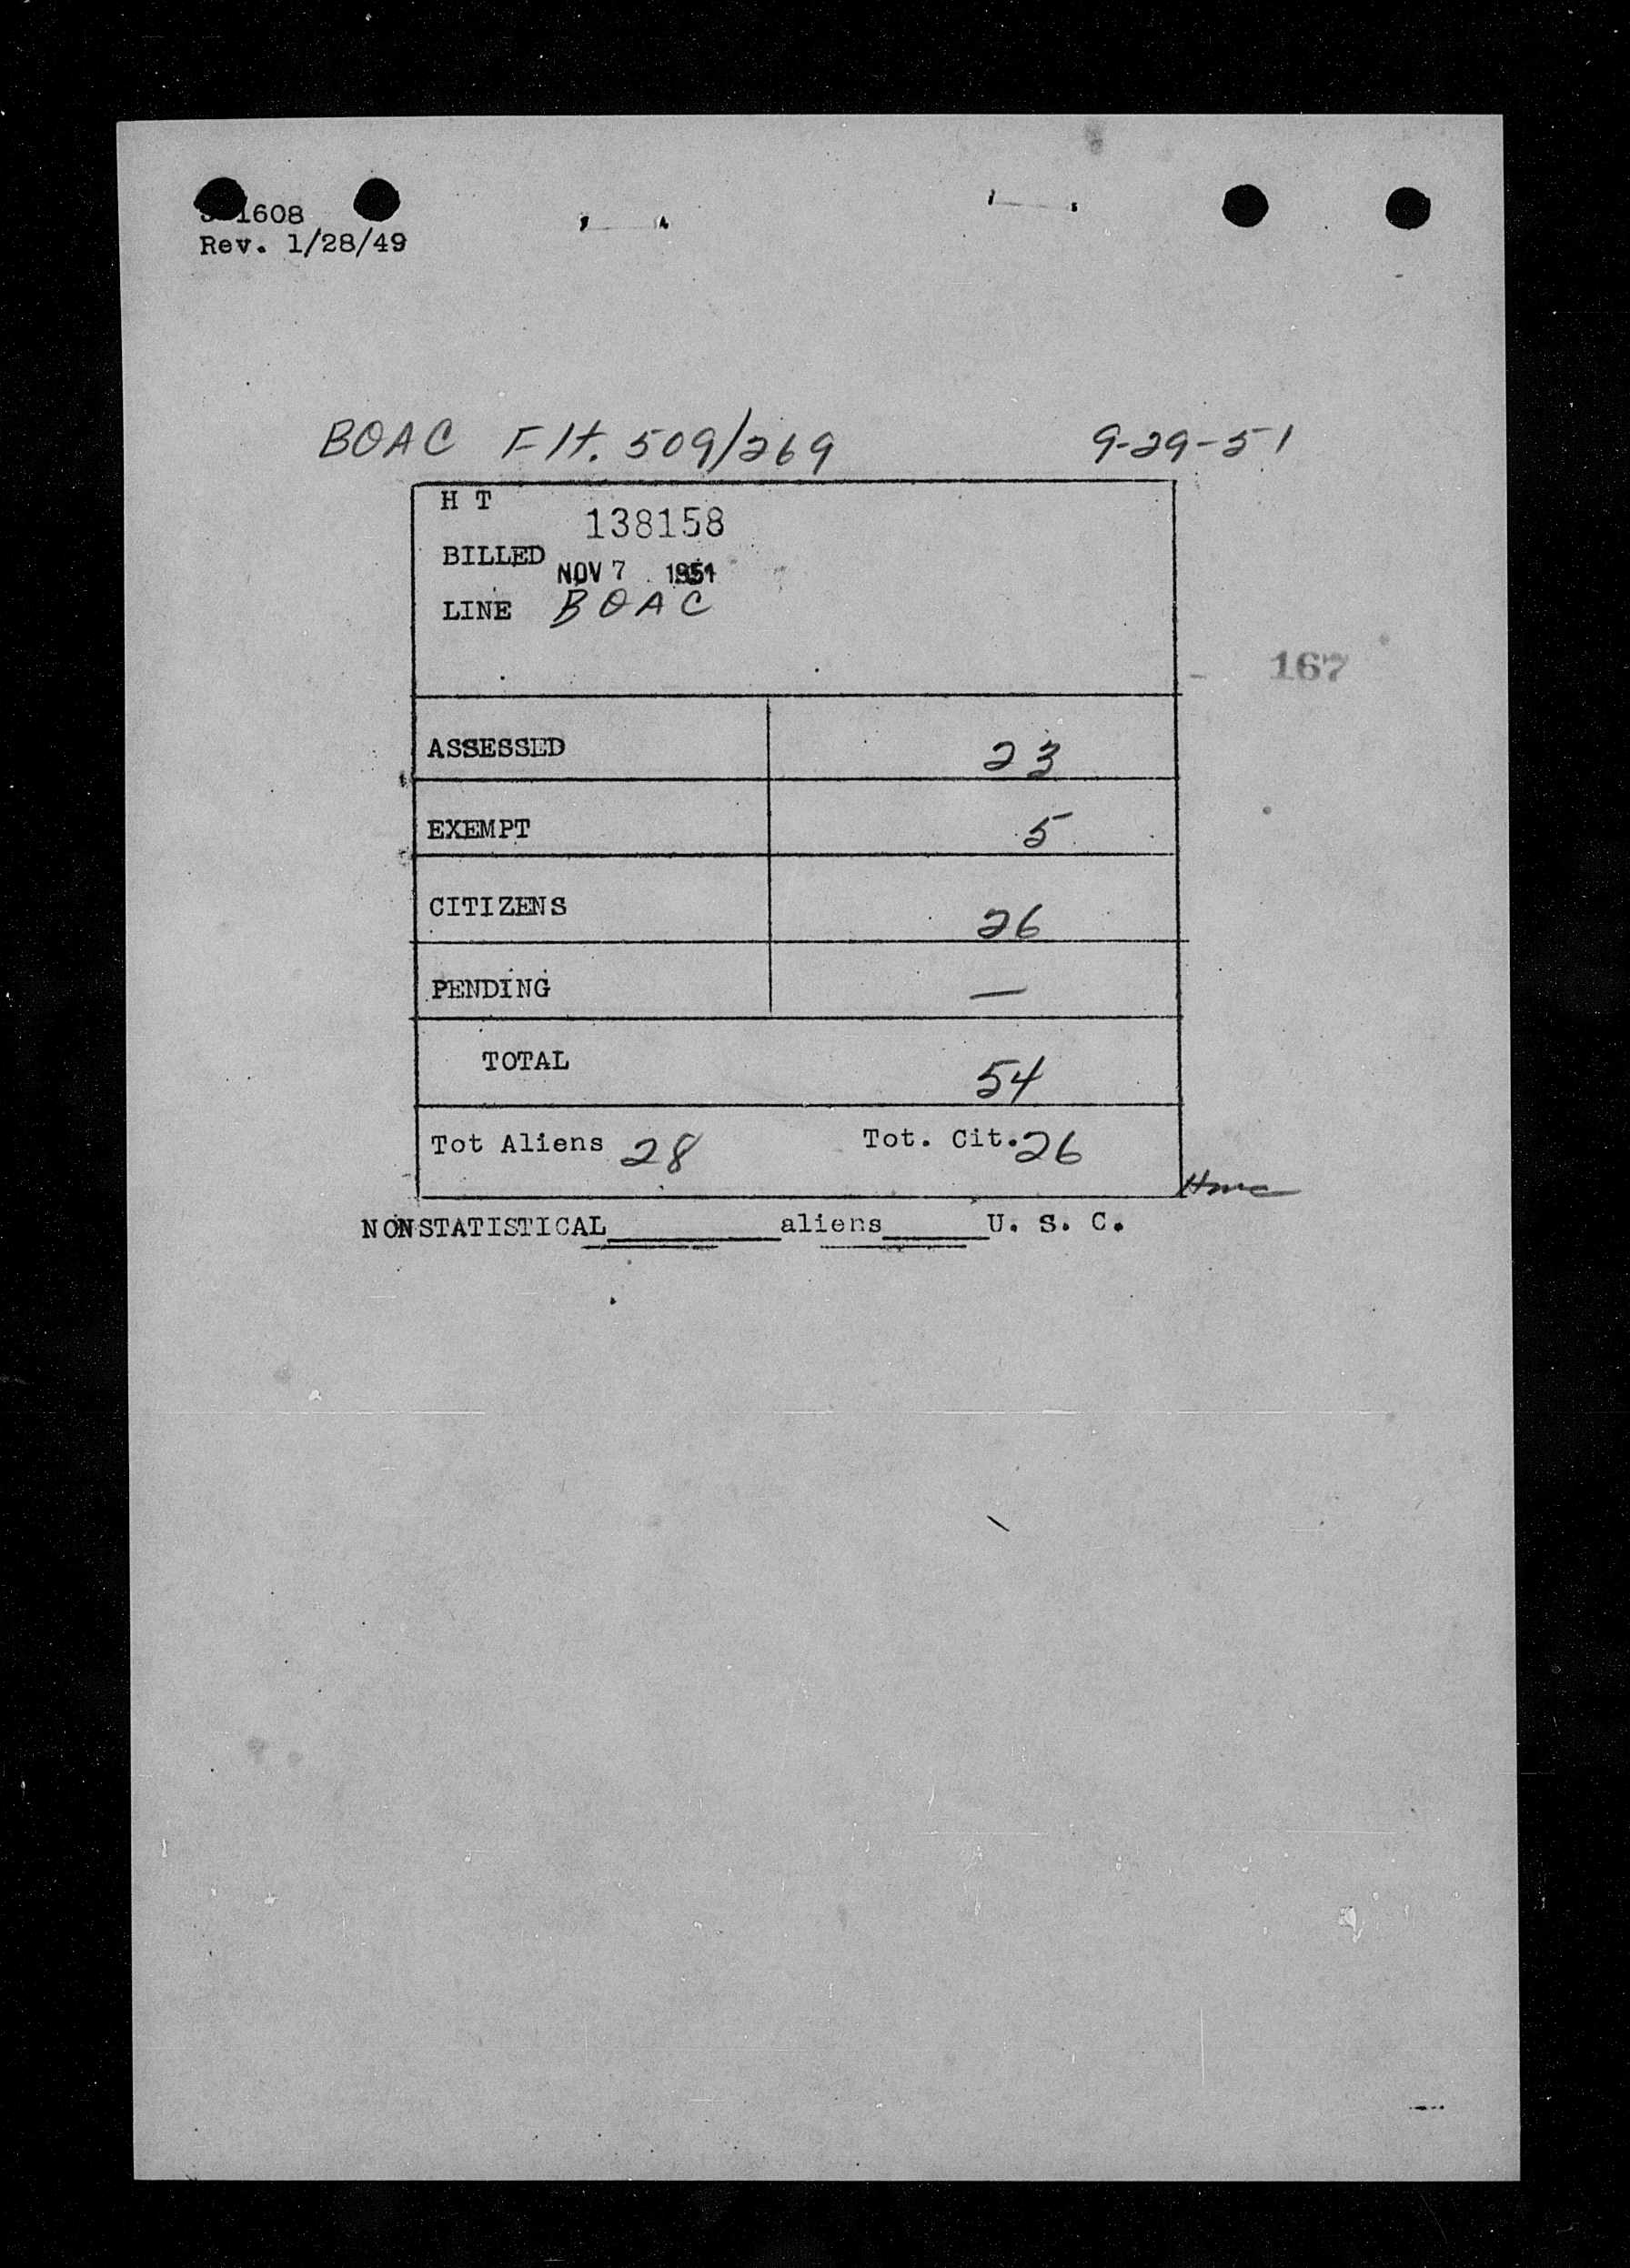 1608
Rev. 1/28/49
BOAC Flt. 509/269 9-29-51
H T
138158
BILLED NOV 7 1951
LINE BOAC
167
ASSESSED 23
EXEMPT 5
CITIZENS 26
PENDING —
TOTAL 54
Tot Aliens 28 Tot. Cit. 26
NONSTATISTICAL________aliens_____U. S. C.